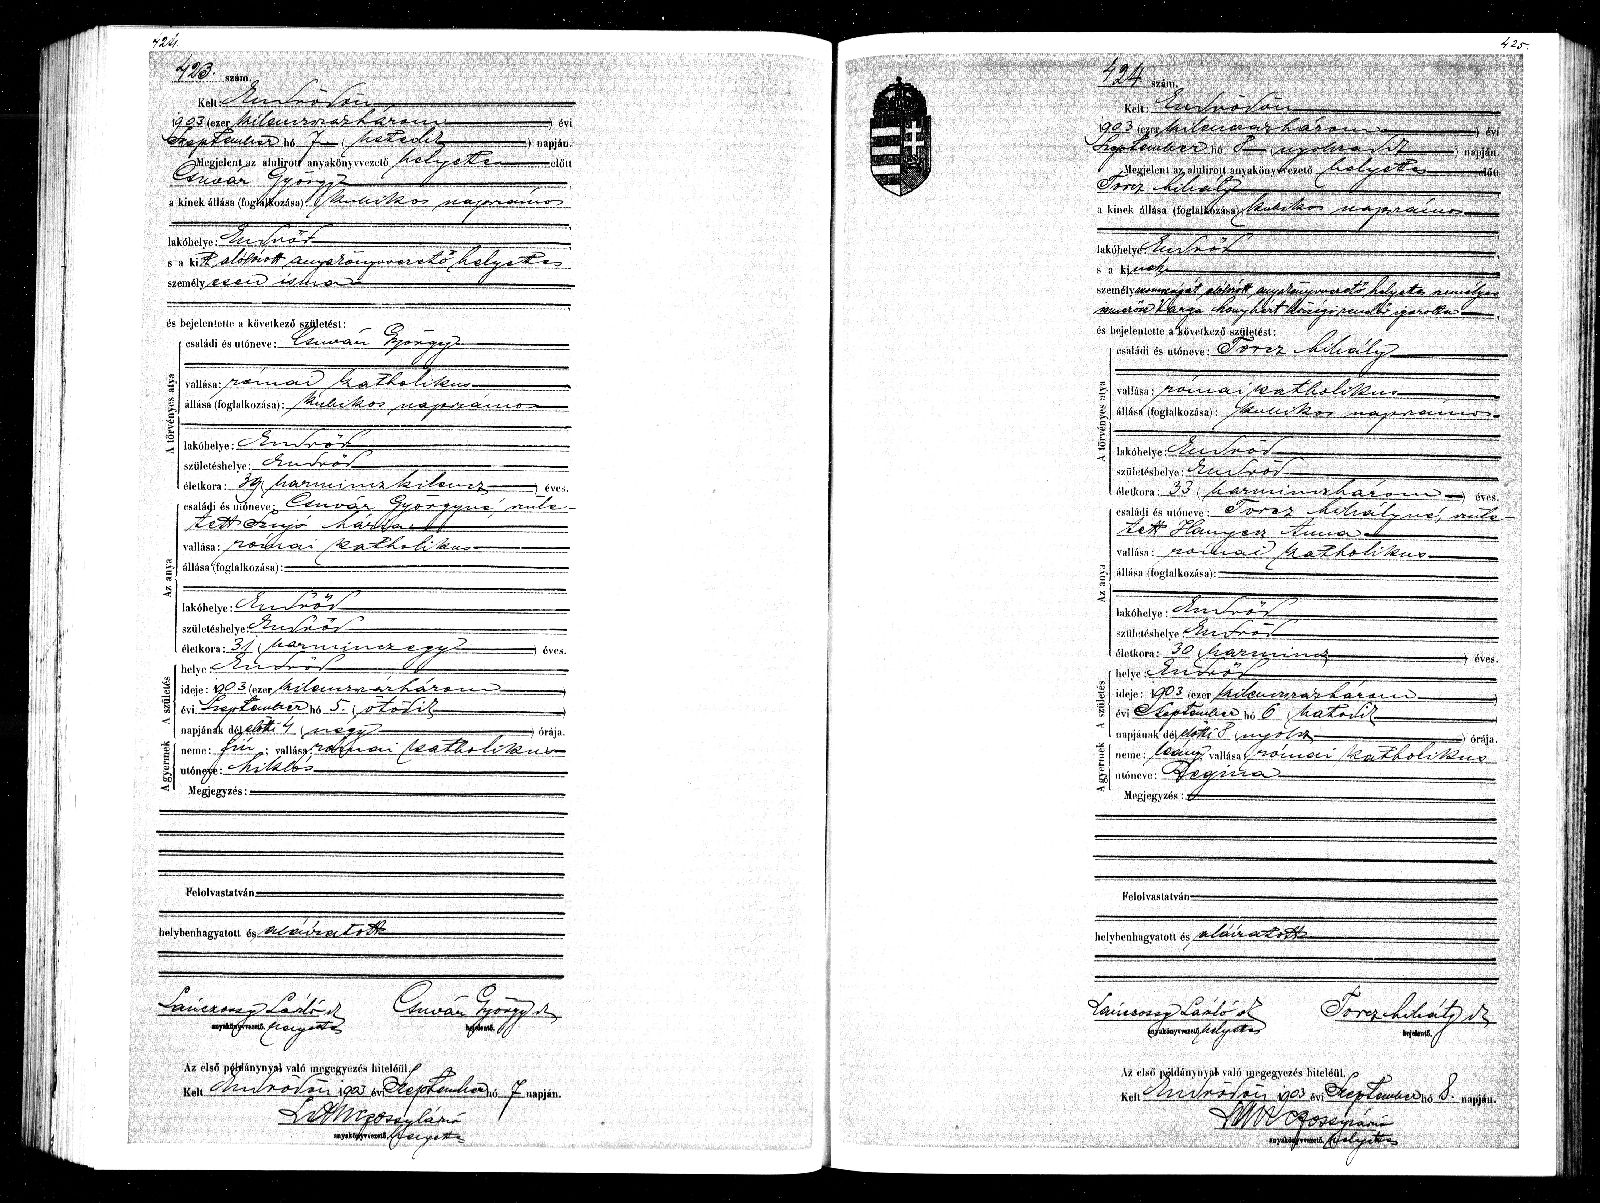 424.
423. szám.
Kelt: Endrődön
1903 (ezer kilenczszázhárom) évi
Szeptember hó 7 (hetedik) napján.
Megjelent az alulirott anyakönyvvezető helyettes előtt
Csuvár György
a kinek állása (foglalkozása): kubikos napszámos
lakóhelye: Endrőd
s a kit alólírott anyakönyvvezető helyettes
személyesen ismer
és bejelentette a következő születést:
A törvényes atya
családi és utóneve: Csuvár György
vallása: római katholikus
állása (foglalkozása): kubikos napszámos
lakóhelye: Endrőd
születéshelye: Endrőd
életkora: 39 (harminczkilencz) éves.
Az anya
családi és utóneve: Csuvár Györgyné, szüle-
tett Szujó Mária
vallása: római katholikus
állása (foglalkozása):
lakóhelye: Endrőd
születéshelye: Endrőd
életkora: 31 (harminczegy) éves.
A születés
helye: Endrőd
ideje: 1903 (ezer kilenczszázhárom)
évi Szeptember hó 5. (ötödik)
napjának délelőtti 4 (négy) órája.
A gyermek
neme: fiú; vallása: római katholikus
utóneve: Miklós
Megjegyzés:
Felolvastatván
helybenhagyatott és aláiratott
Lánczossy László sk Csuvár György sk
anyakönyvvezető. helyettes bejelentő.
Az első példánynyal való megegyezés hiteléül.
Kelt Endrődön 1903 évi Szeptember hó 7 napján.
Lánczossy László
anyakönyvvezető. helyettes
425.
424 szám.
Kelt: Endrődön
1903 (ezer kilenczszázhárom) évi
Szeptember hó 8 (nyolczadik) napján.
Megjelent az alulirott anyakönyvvezető helyettes előtt
Torcz Mihály
a kinek állása (foglalkozása): kubikos napszámos
lakóhelye: Endrőd
s a kinek
személyazonosságát alólírott anyakönyvvezető helyettes személyes
ismerőse Varga községi rendőr igazolta
és bejelentette a következő születést:
A törvényes atya
családi és utóneve: Torcz Mihály
vallása: római katholikus
állása (foglalkozása): kubikos napszámos
lakóhelye: Endrőd
születéshelye: Endrőd
életkora: 33 (harminczhárom) éves.
Az anya
családi és utóneve: Torcz Mihályné, szüle-
tett Hanyecz Anna
vallása: római katholikus
állása (foglalkozása):
lakóhelye: Endrőd
születéshelye Endrőd
életkora: 30 (harmincz) éves.
A születés
helye: Endrőd
ideje: 1903 (ezer kilenczszázhárom)
évi Szeptember hó 6 (hatodik)
napjának délelőtti 8 (nyolcz) órája.
A gyermek
neme: leány; vallása: római katholikus
utóneve: Regina
Megjegyzés:
Felolvastatván
helybenhagyatott és aláiratott
Lánczossy László sk Torcz Mihály sk
anyakönyvvezető. helyettes bejelentő.
Az első példánynyal való megegyezés hiteléül.
Kelt Endrődön 1903 évi Szeptember hó 8. napján.
Lánczossy László
anyakönyvvezető. helyettes